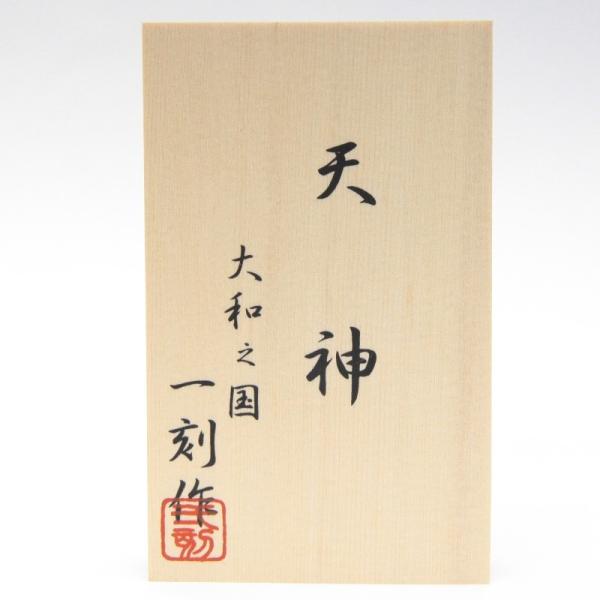 天神
大和之国
一刻作